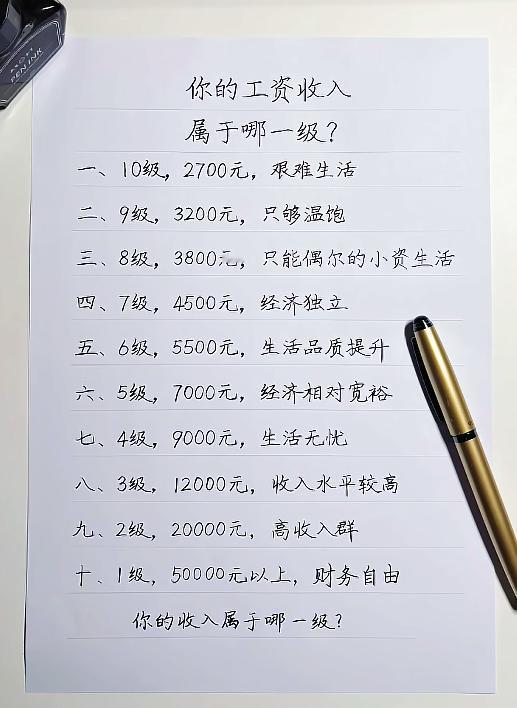 PEN INK
你的工资收入
属于哪一级？
一、10级，2700元，艰难生活
二、9级，3200元，只够温饱
三、8级，3800元，只能偶尔的小资生活
四、7级，4500元，经济独立
五、6级，5500元，生活品质提升
六、5级，7000元，经济相对宽裕
七、4级，9000元，生活无忧
八、3级，12000元，收入水平较高
九、2级，20000元，高收入群
十、1级，50000元以上，财务自由
你的收入属于哪一级？